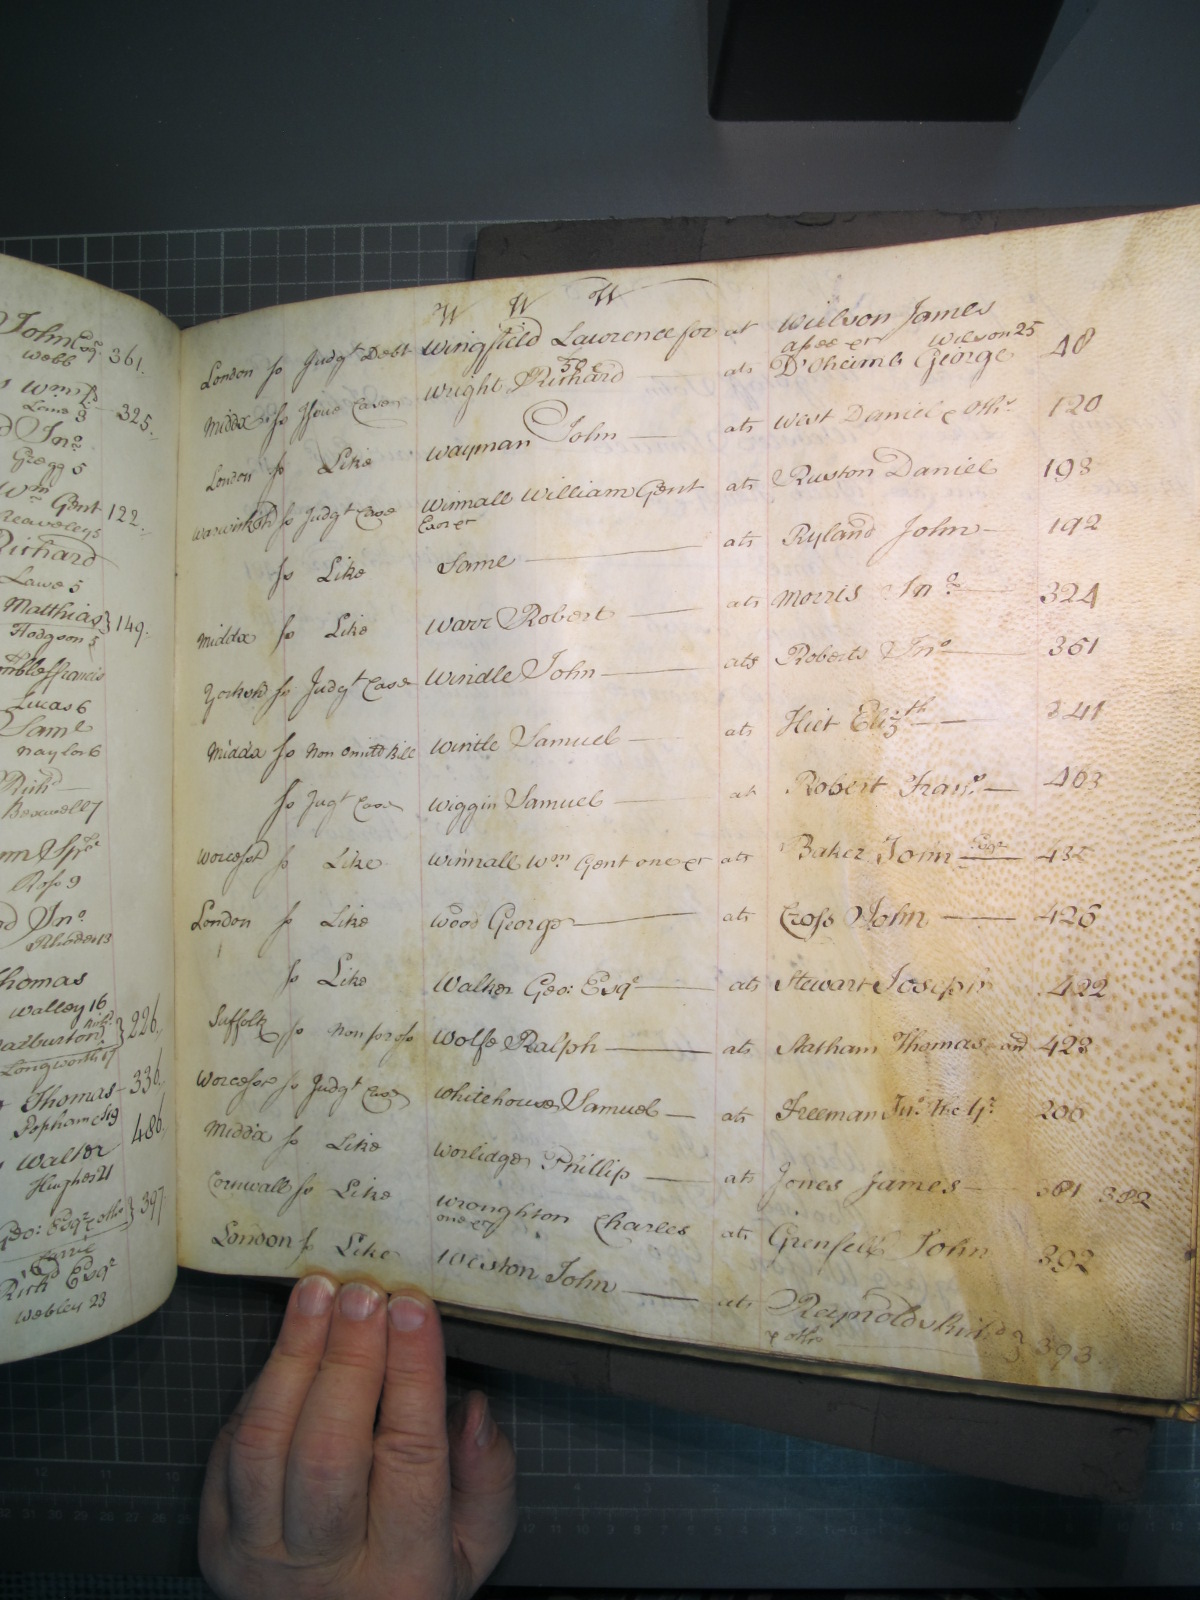 John Esqr 361.
Webb
Wm
Lane 3 325.
Jno.
Gregg 5
Wm Gent 122.
Reaveley 5
Richard
Lawe 5
Matthias } 149.
Hodgson 5
Francis
Lucas 6
Saml
Naylor 6
Richd
7
Ross 9
Jno.
Rhodes 13
Thomas
Walley 16
} 226.
Longworth 17
Thomas 336.
Popham 19
Walter 486.
Hughes 21
Geo: Esqr & othrs } 397.
Same
Richd Esqr
Webley 23
W W W
London ss Judgt Debt Wingfield Lawrence for at Wilson James
Wilson 25
Middx ss Issue Case Wright Richard ats D'Oheimb George 48
London ss Like Wayman John ats West Daniel & Othr. 120
Warwicksh ss Judgt Case Winnall William Gent ats Ruston Daniel 193
ss Like Same ats Ryland John 192
Middx ss Like Warr Robert ats Morris Jno. 324
Yorksh ss Judgt Case Windle John ats Roberts Jno. 361
Middx ss Non Omitt Bill Wintle Samuel ats Hiet Elizth 341
ss Jugt Case Wiggin Samuel at Robert Frans. 403
Worcest ss Like Winnall Wm Gent one &c ats Baker John Esqr 432
London ss Like Wood George ats Cross John 426
ss Like Walker Geo: Esqr ats Stewart Joseph 422
Suffolk ss Non pros Wolfe Ralph ats Statham Thomas and 423
Worcestr ss Judgt Case Whitehouse Samuel ats Freeman Jno. 206
Middx ss Like Worlidge Phillip ats Jones James 381 382
Cornwall ss Like Wroughton Charles ats Grenfell John 392
one &c
London ss Like Weston John ats Reynolds Richd } 393
& othrs